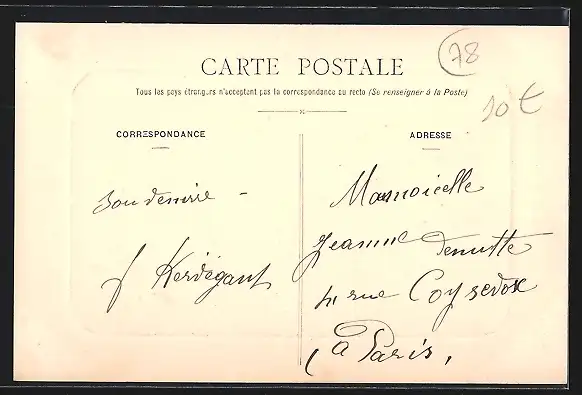 CARTE POSTALE
78
Tous les pays étrangers n'acceptent pas la correspondance au recto (Se renseigner à la Poste)
10 €
CORRESPONDANCE
ADRESSE
Bon
Kerdégant
Mamoicelle
Jeanne
4 rue Coysevox
à Paris.